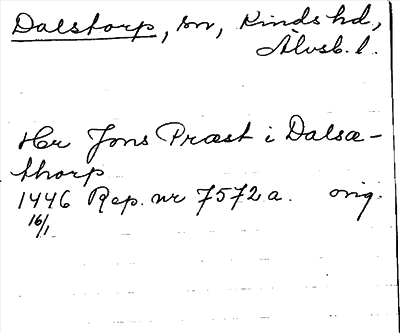 Dalstorp, sn, Kinds hd,
Älvsb. l.
Her Jons Præst i Dalsæ-
thorp
1446 Rep. nr 7572 a. orig.
16/1